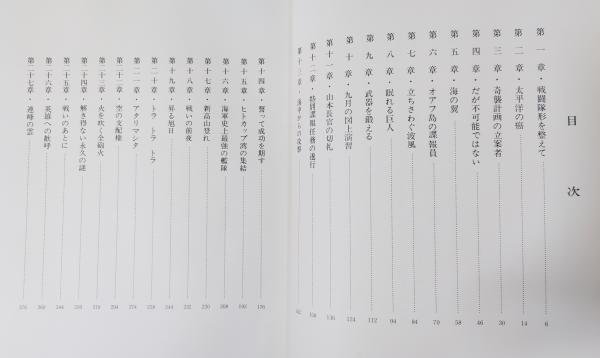 目次
第一章・戦闘隊形を整えて 6
第二章・太平洋の癌 14
第三章・奇襲計画の立案者 30
第四章・だが不可能ではない 46
第五章・海の翼 58
第六章・オアフ島の諜報員 70
第七章・立ちさわぐ波風 84
第八章・眠れる巨人 94
第九章・武器を鍛える 112
第十章・九月の図上演習 124
第十一章・山本長官の切札 136
第十二章・特別諜報任務の遂行
第十三章・海中からの攻撃
第十四章・誓って成功を期す 176
第十五章・ヒトカップ湾の集結 192
第十六章・海軍史上最強の艦隊 208
第十七章・新高山登れ
第十八章・戦いの前夜 232
第十九章・昇る旭日 244
第二十章・トラ トラ トラ 258
第二一章・アタリマシタ 274
第二十二章・空の支配権 294
第二十三章・火を吹く全砲火
第二十四章・解き得ない永久の謎
第二十五章・戦いのあとに
第二十六章・英雄への歓呼
第二十七章・連峰の雲